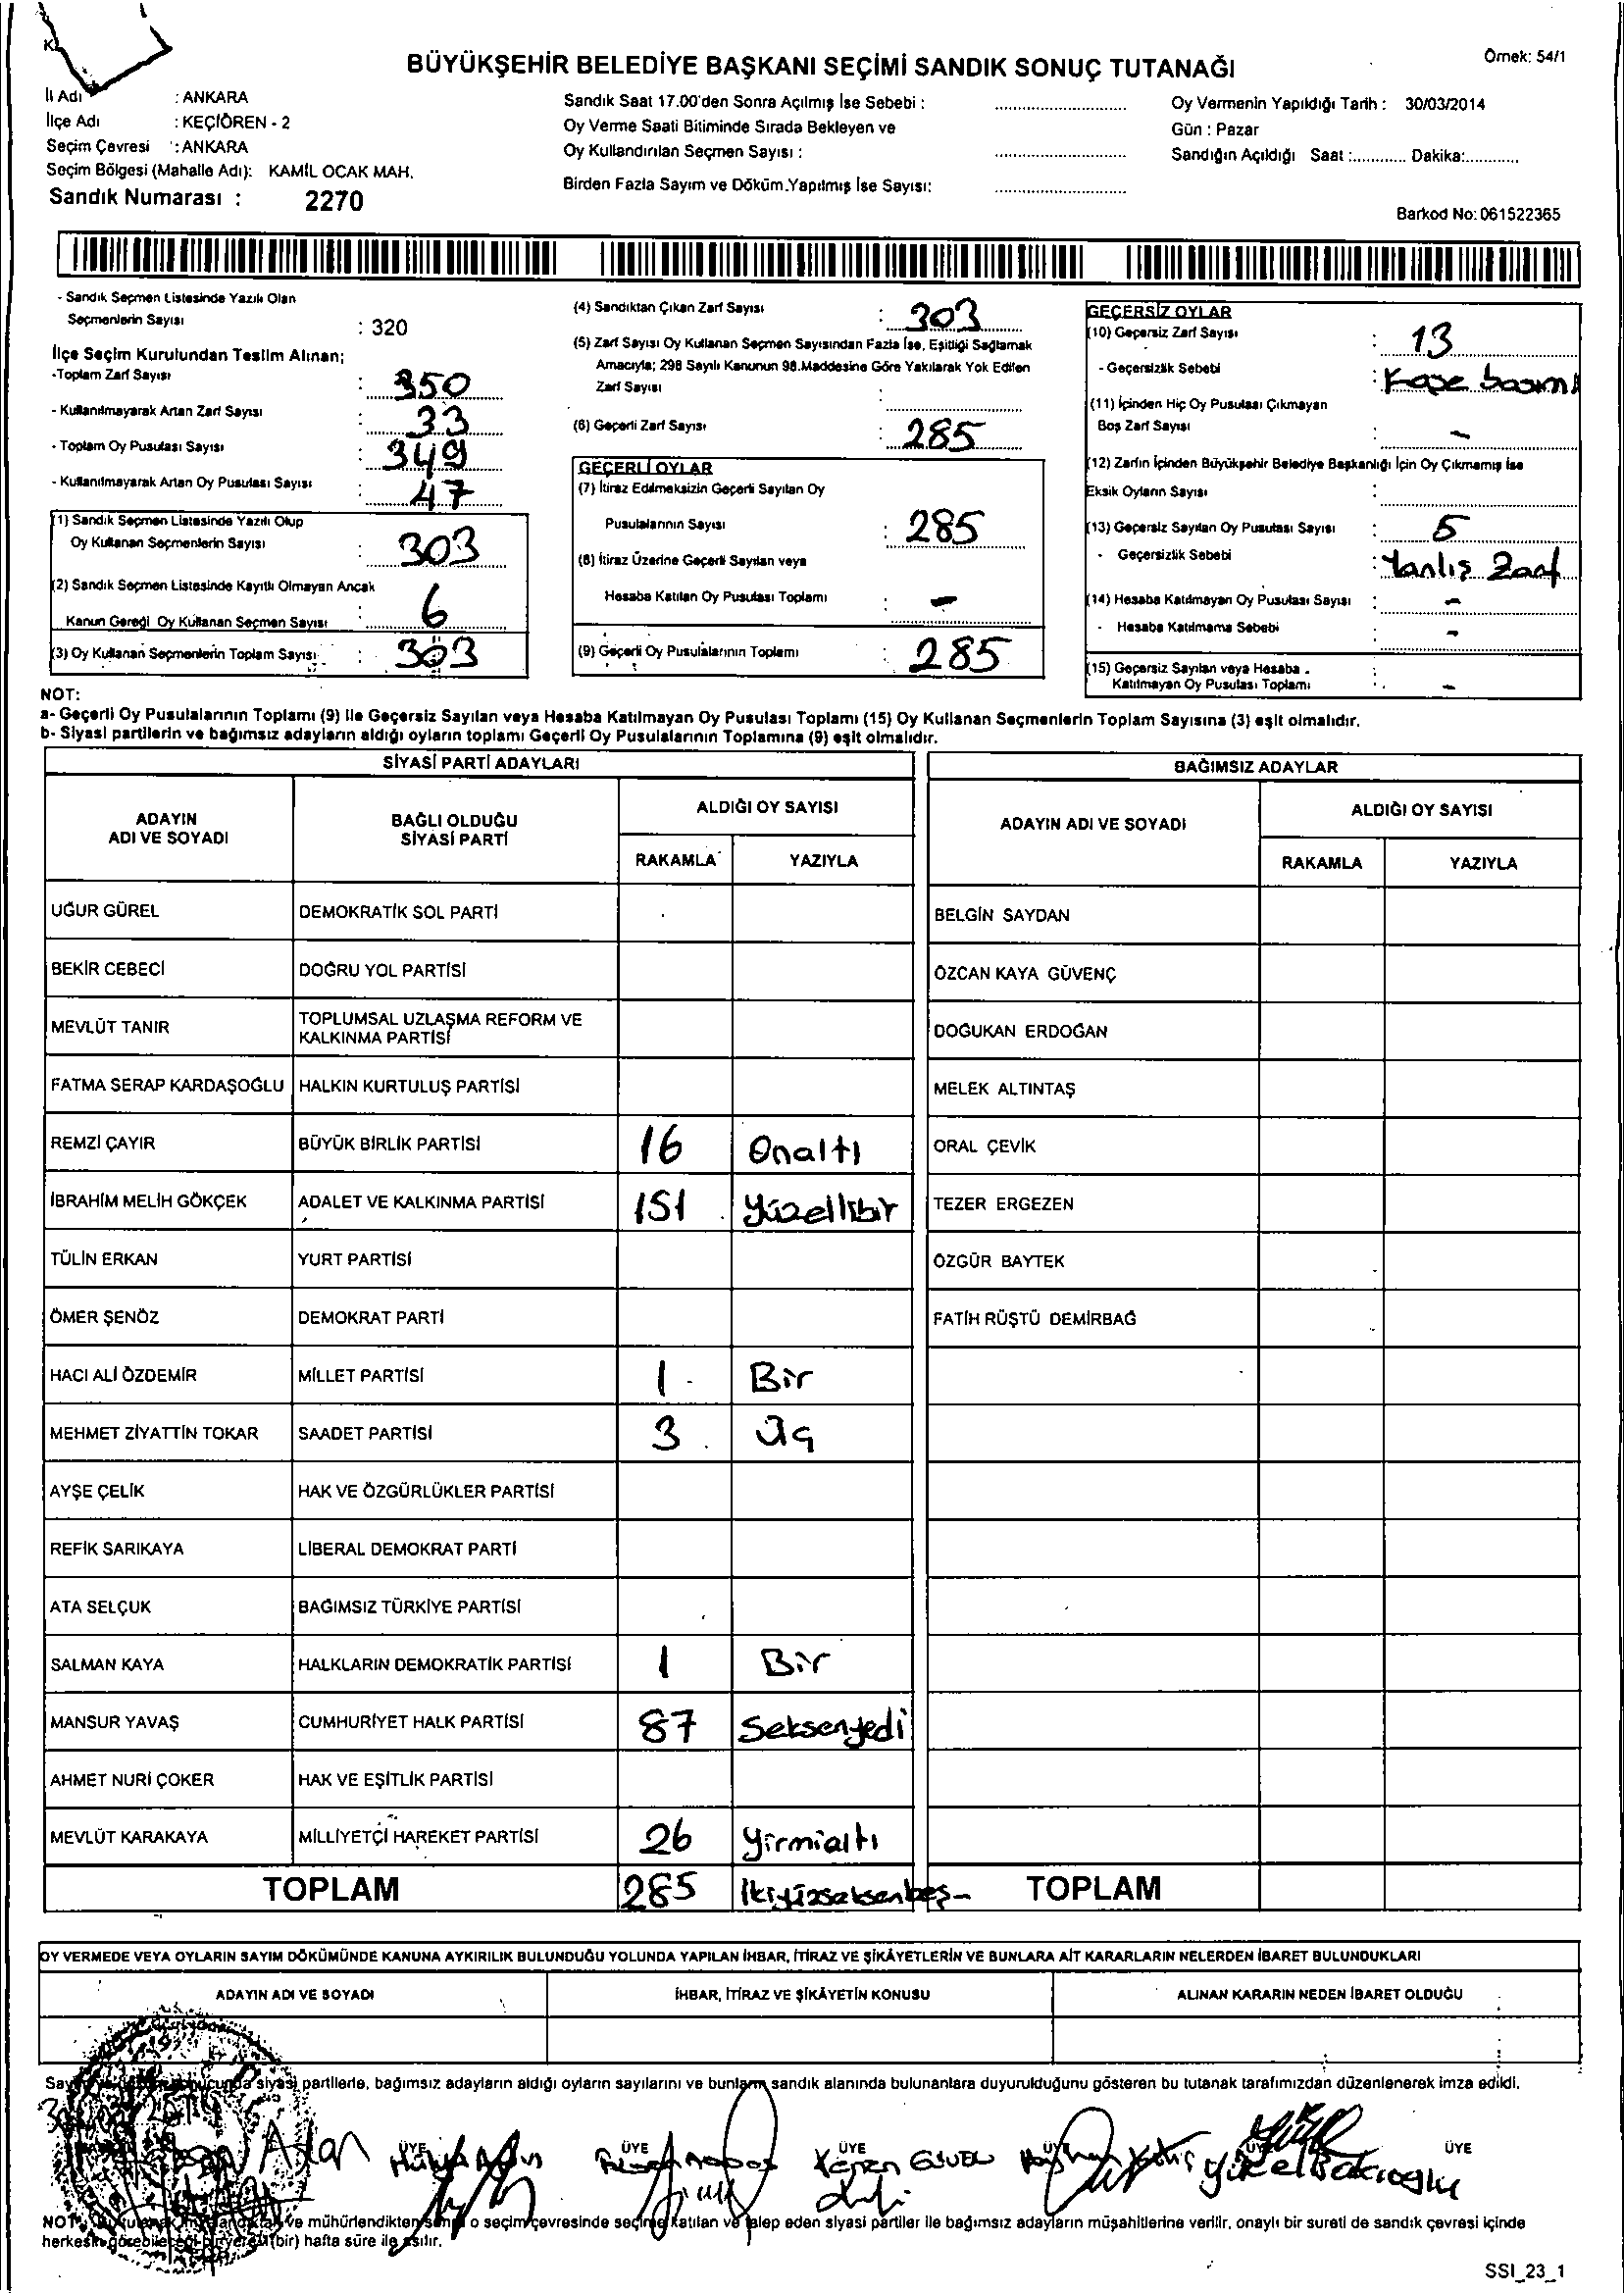 BÜYÜKŞEHİR BELEDİYE BAŞKANI SEÇİMİ SANDIK SONUÇ TUTANAĞI
Örnek: 54/1
İl Adı : ANKARA
İlçe Adı : KEÇİÖREN - 2
Seçim Çevresi : ANKARA
Seçim Bölgesi (Mahalle Adı): KAMİL OCAK MAH.
Sandık Numarası : 2270
Sandık Saat 17.00'den Sonra Açılmış İse Sebebi :
Oy Verme Saati Bitiminde Sırada Bekleyen ve
Oy Kullandırılan Seçmen Sayısı :
Birden Fazla Sayım ve Döküm.Yapılmış İse Sayısı:
Oy Vermenin Yapıldığı Tarih : 30/03/2014
Gün : Pazar
Sandığın Açıldığı Saat :............ Dakika:...........
Barkod No: 061522365
- Sandık Seçmen Listesinde Yazılı Olan
Seçmenlerin Sayısı : 320
İlçe Seçim Kurulundan Teslim Alınan;
-Toplam Zarf Sayısı : 350
- Kullanılmayarak Artan Zarf Sayısı : 33
- Toplam Oy Pusulası Sayısı : 349
- Kullanılmayarak Artan Oy Pusulası Sayısı : 47
(1) Sandık Seçmen Listesinde Yazılı Olup
Oy Kullanan Seçmenlerin Sayısı : 303
(2) Sandık Seçmen Listesinde Kayıtlı Olmayan Ancak
Kanun Gereği Oy Kullanan Seçmen Sayısı : 6
(3) Oy Kullanan Seçmenlerin Toplam Sayısı : 303
(4) Sandıktan Çıkan Zarf Sayısı : 303
(5) Zarf Sayısı Oy Kullanan Seçmen Sayısından Fazla İse, Eşitliği Sağlamak
Amacıyla; 298 Sayılı Kanunun 98.Maddesine Göre Yakılarak Yok Edilen
Zarf Sayısı :
(6) Geçerli Zarf Sayısı : 285
GEÇERLİ OYLAR
(7) İtiraz Edilmeksizin Geçerli Sayılan Oy
Pusulalarının Sayısı : 285
(8) İtiraz Üzerine Geçerli Sayılan veya
Hesaba Katılan Oy Pusulası Toplamı : -
(9) Geçerli Oy Pusulalarının Toplamı : 285
GEÇERSİZ OYLAR
(10) Geçersiz Zarf Sayısı : 13
- Geçersizlik Sebebi : Kaşe basımı
(11) İçinden Hiç Oy Pusulası Çıkmayan
Boş Zarf Sayısı : -
(12) Zarfın İçinden Büyükşehir Belediye Başkanlığı İçin Oy Çıkmamış İse
Eksik Oyların Sayısı :
(13) Geçersiz Sayılan Oy Pusulası Sayısı : 5
- Geçersizlik Sebebi : Yanlış Zarf
(14) Hesaba Katılmayan Oy Pusulası Sayısı : -
- Hesaba Katılmama Sebebi : -
(15) Geçersiz Sayılan veya Hesaba
Katılmayan Oy Pusulası Toplamı : -
NOT:
a- Geçerli Oy Pusulalarının Toplamı (9) ile Geçersiz Sayılan veya Hesaba Katılmayan Oy Pusulası Toplamı (15) Oy Kullanan Seçmenlerin Toplam Sayısına (3) eşit olmalıdır.
b- Siyasi partilerin ve bağımsız adayların aldığı oyların toplamı Geçerli Oy Pusulalarının Toplamına (9) eşit olmalıdır.
SİYASİ PARTİ ADAYLARI
ADAYIN ADI VE SOYADI
BAĞLI OLDUĞU SİYASİ PARTİ
ALDIĞI OY SAYISI
RAKAMLA YAZIYLA
UĞUR GÜREL DEMOKRATİK SOL PARTİ
BEKİR CEBECİ DOĞRU YOL PARTİSİ
MEVLÜT TANIR TOPLUMSAL UZLAŞMA REFORM VE
KALKINMA PARTİSİ
FATMA SERAP KARDAŞOĞLU HALKIN KURTULUŞ PARTİSİ
REMZİ ÇAYIR BÜYÜK BİRLİK PARTİSİ 16 Onaltı
İBRAHİM MELİH GÖKÇEK ADALET VE KALKINMA PARTİSİ 151 yüzellibir
TÜLİN ERKAN YURT PARTİSİ
ÖMER ŞENÖZ DEMOKRAT PARTİ
HACI ALİ ÖZDEMİR MİLLET PARTİSİ 1 Bir
MEHMET ZİYATTİN TOKAR SAADET PARTİSİ 3 Üç
AYŞE ÇELİK HAK VE ÖZGÜRLÜKLER PARTİSİ
REFİK SARIKAYA LİBERAL DEMOKRAT PARTİ
ATA SELÇUK BAĞIMSIZ TÜRKİYE PARTİSİ
SALMAN KAYA HALKLARIN DEMOKRATİK PARTİSİ 1 Bir
MANSUR YAVAŞ CUMHURİYET HALK PARTİSİ 87 Seksenyedi
AHMET NURİ ÇOKER HAK VE EŞİTLİK PARTİSİ
MEVLÜT KARAKAYA MİLLİYETÇİ HAREKET PARTİSİ 26 yirmialtı
TOPLAM 285 İkiyüzseksenbeş-
BAĞIMSIZ ADAYLAR
ADAYIN ADI VE SOYADI
ALDIĞI OY SAYISI
RAKAMLA YAZIYLA
BELGİN SAYDAN
ÖZCAN KAYA GÜVENÇ
DOĞUKAN ERDOĞAN
MELEK ALTINTAŞ
ORAL ÇEVİK
TEZER ERGEZEN
ÖZGÜR BAYTEK
FATİH RÜŞTÜ DEMİRBAĞ
TOPLAM
OY VERMEDE VEYA OYLARIN SAYIM DÖKÜMÜNDE KANUNA AYKIRILIK BULUNDUĞU YOLUNDA YAPILAN İHBAR, İTİRAZ VE ŞİKÂYETLERİN VE BUNLARA AİT KARARLARIN NELERDEN İBARET BULUNDUKLARI
ADAYIN ADI VE SOYADI
İHBAR, İTİRAZ VE ŞİKÂYETİN KONUSU
ALINAN KARARIN NEDEN İBARET OLDUĞU
siyasi partilerle, bağımsız adayların aldığı oyların sayılarını ve bunların sandık alanında bulunanlara duyurulduğunu gösteren bu tutanak tarafımızdan düzenlenerek imza edildi.
ÜYE ÜYE ÜYE ÜYE ÜYE ÜYE
Aslan Hülya Kenan GÜVEN Yüksel Bakıcıoğlu
NOT: ve mühürlendikten sonra o seçim çevresinde seçime katılan ve talep eden siyasi partiler ile bağımsız adayların müşahitlerine verilir, onaylı bir sureti de sandık çevresi içinde
herkesin görebileceği bir yere 1(bir) hafta süre ile asılır.
SSI_23_1